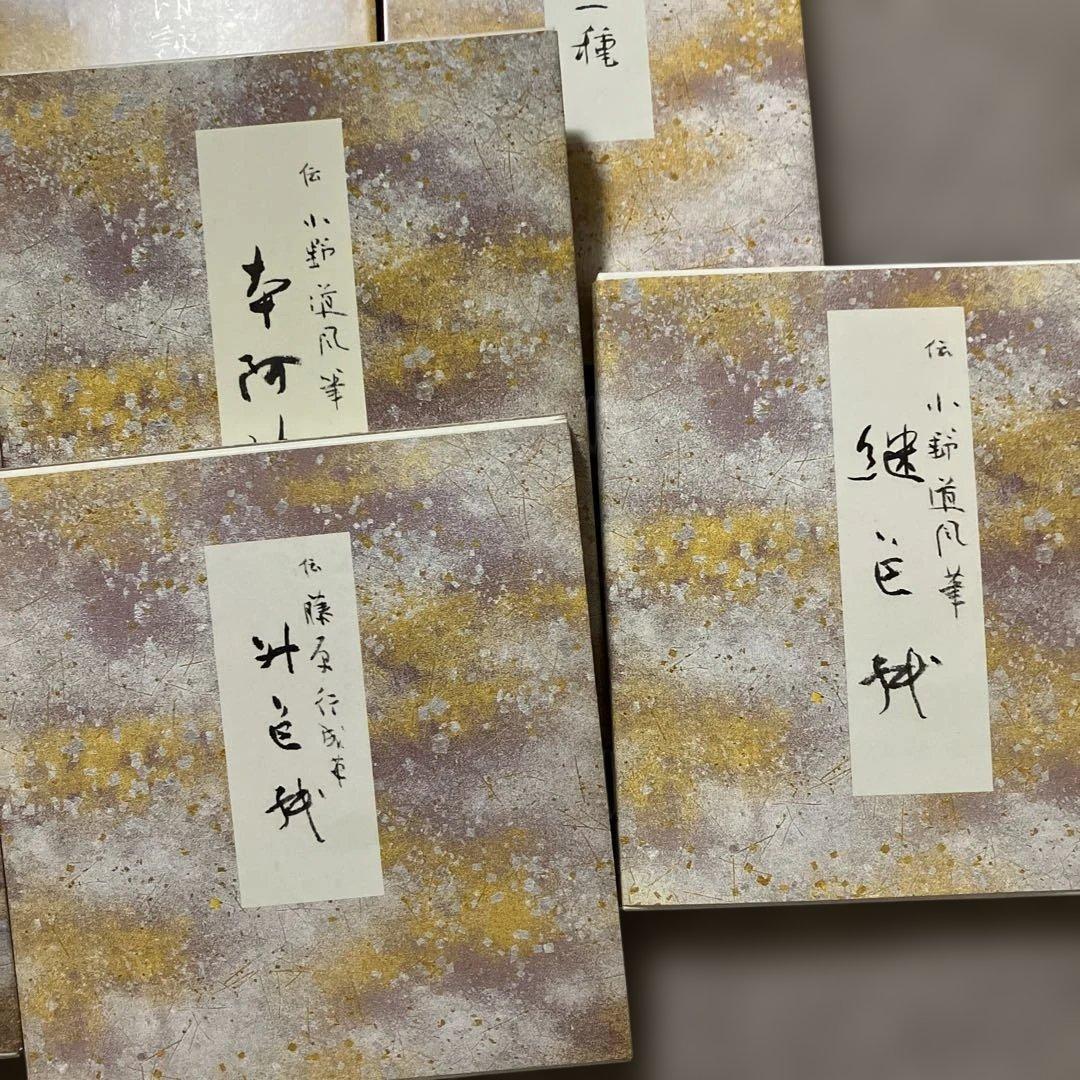 解説
二種
伝 小野道風筆
本阿
伝 小野道風筆
継色紙
伝 藤原行成筆
升色紙